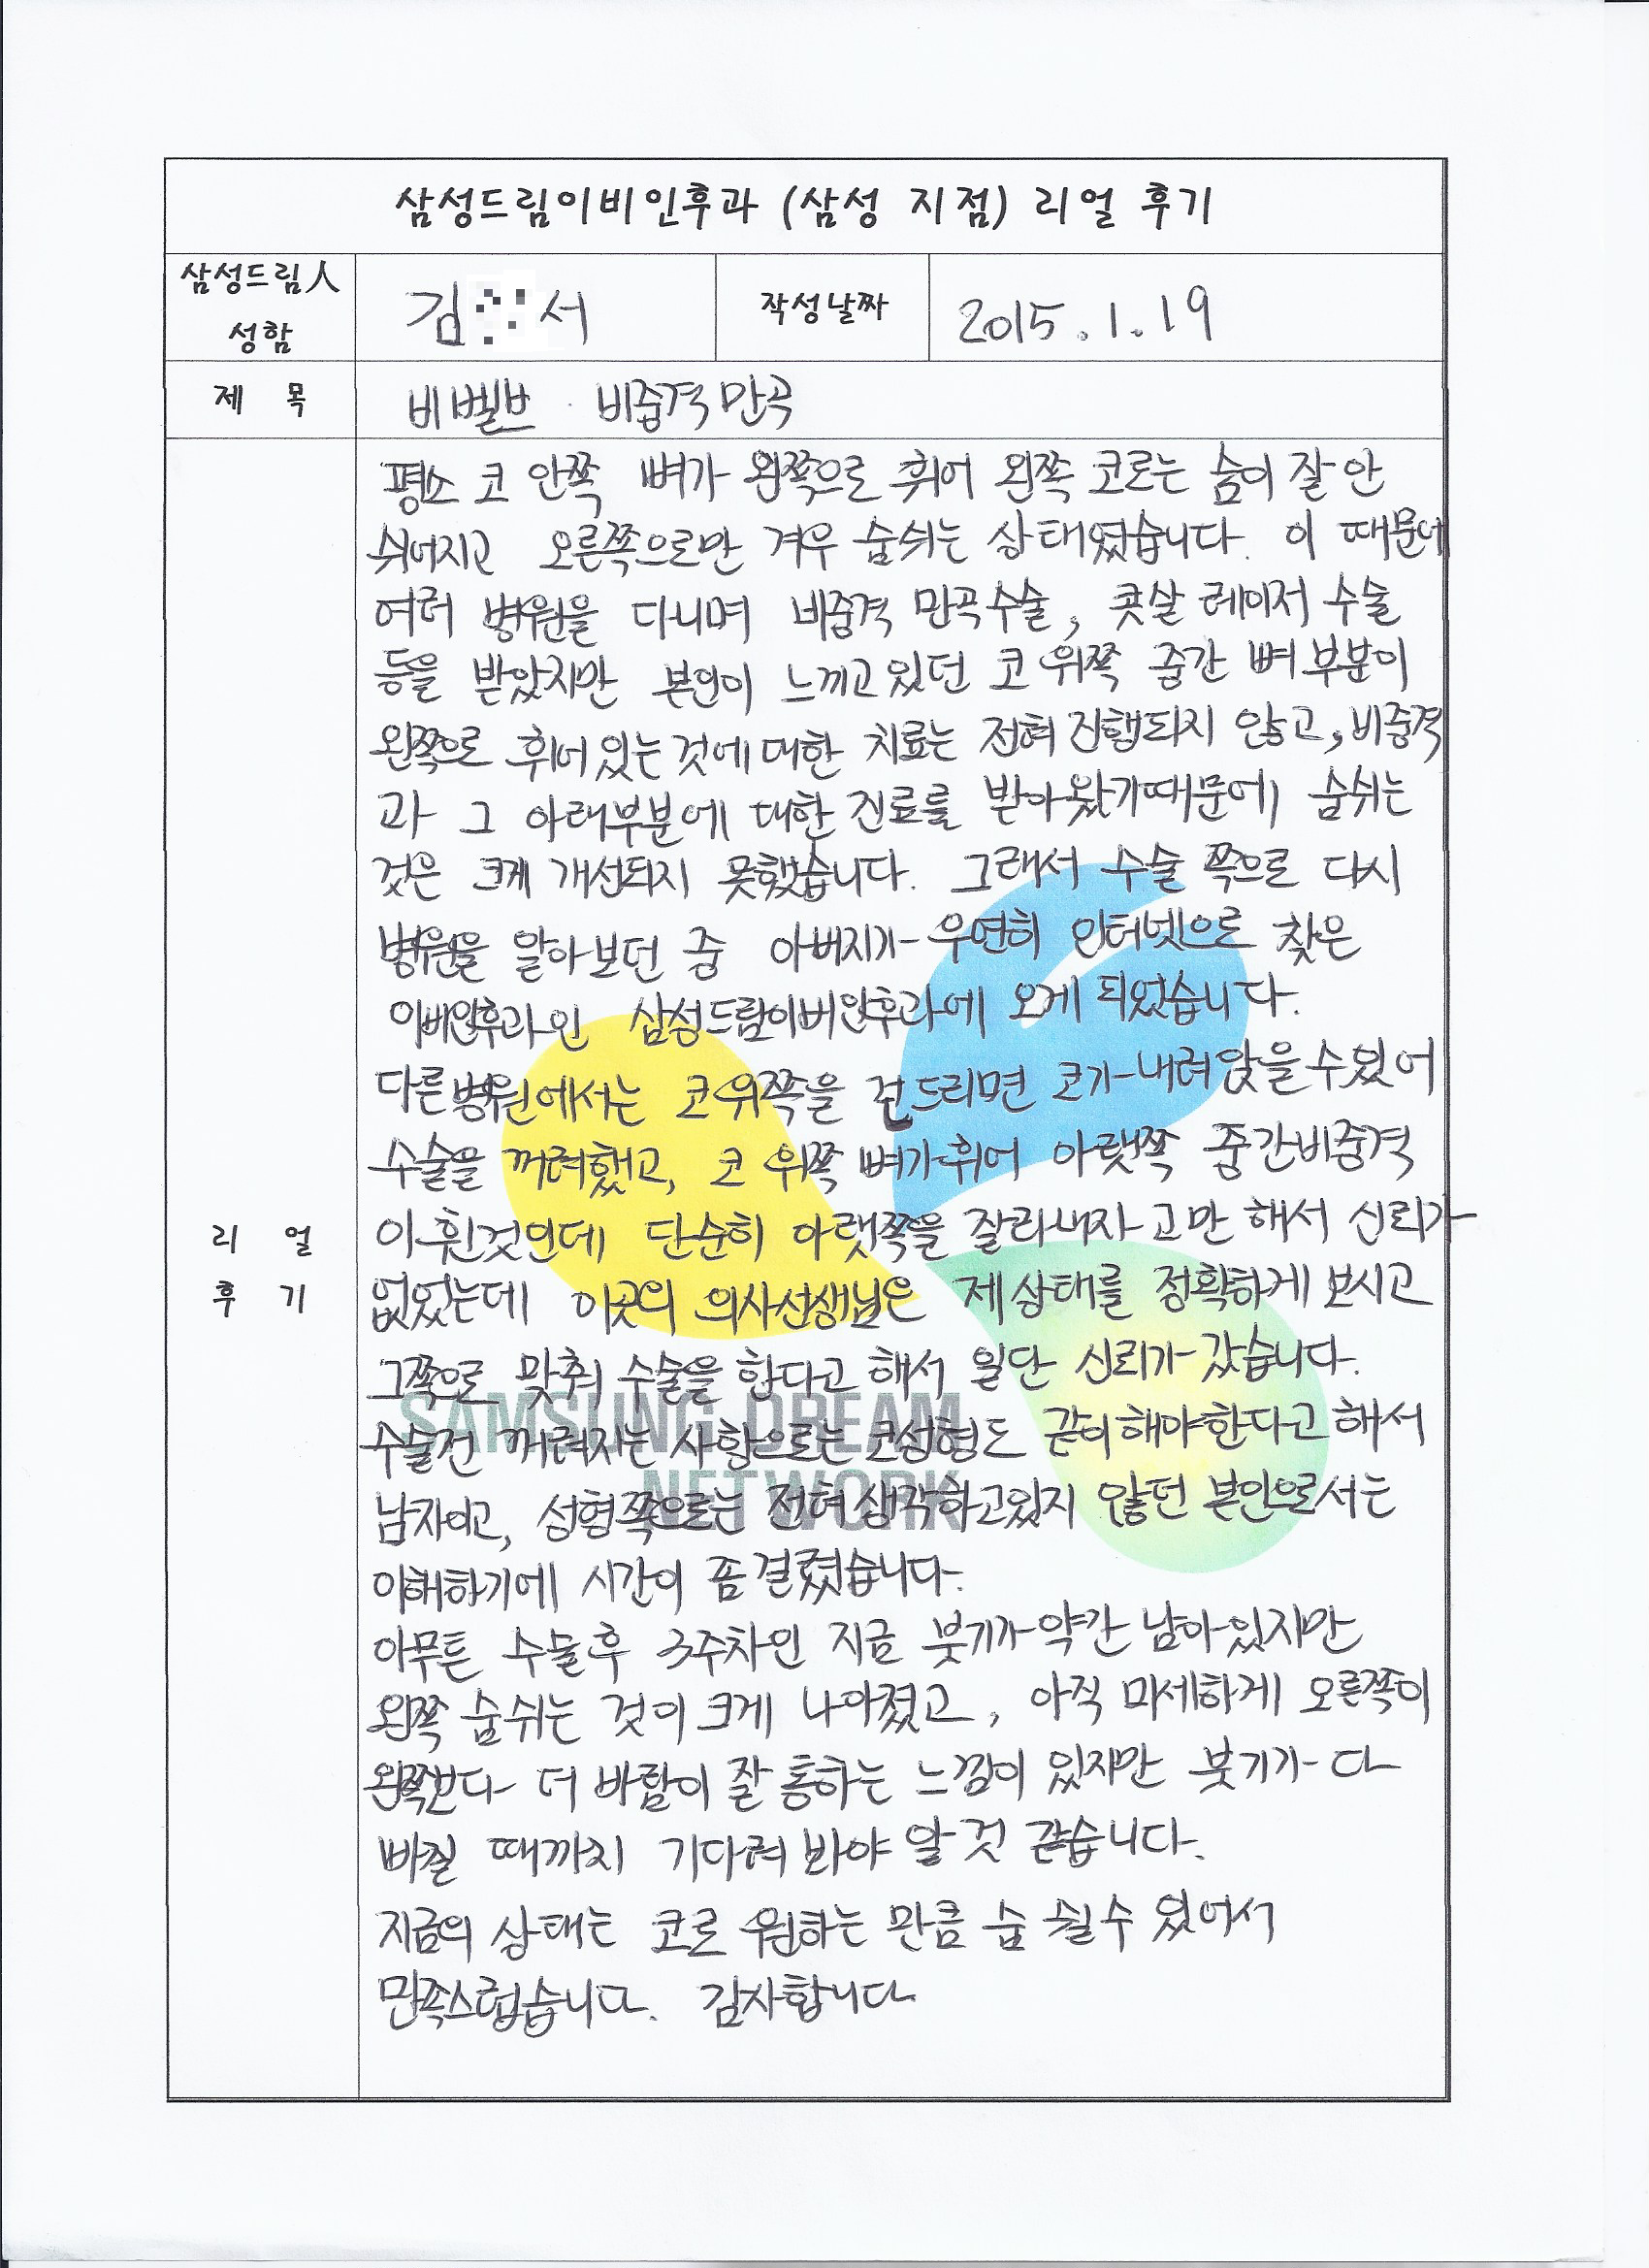 삼성드림이비인후과 (삼성 지점) 리얼 후기
삼성드림人
성함
김 서
작성날짜
2015.1.19
제 목
비밸브 비중격만곡
평소 코 안쪽 뼈가 왼쪽으로 휘어 왼쪽 코로는 숨이 잘 안
쉬어지고 오른쪽으로만 겨우 숨쉬는 상태였습니다. 이 때문에
여러 병원을 다니며 비중격 만곡수술, 콧살 레이저 수술
등을 받았지만 본인이 느끼고있던 코 위쪽 중간 뼈 부분이
왼쪽으로 휘어있는것에 대한 치료는 전혀 진행되지 않고, 비중격
과 그 아래부분에 대한 진료를 받아왔기때문에 숨쉬는
것은 크게 개선되지 못했습니다. 그래서 수술 쪽으로 다시
병원을 알아보던 중 아버지가 우연히 인터넷으로 찾은
이비인후과인 삼성드림이비인후과에 오게 되었습니다.
다른병원에서는 코위쪽을 건드리면 코가 내려앉을수있어
수술을 꺼려했고, 코 위쪽 뼈가휘어 아랫쪽 중간비중격
이휜것인데 단순히 아랫쪽을 잘라내자고만 해서 신뢰가
리 얼
후 기
없었는데 이곳의 의사선생님은 제상태를 정확하게 보시고
그쪽으로 맞춰 수술을 한다고 해서 일단 신뢰가 갔습니다.
수술전 꺼려지는 사항으로는 코성형도 같이해야한다고 해서
남자이고, 성형쪽으로는 전혀생각하고있지 않던 본인으로서는
이해하기에 시간이 좀 걸렸습니다.
아무튼 수술후 3주차인 지금 붓기가 약간 남아있지만
왼쪽 숨쉬는 것이 크게 나아졌고, 아직 미세하게 오른쪽이
왼쪽보다 더 바람이 잘 통하는 느낌이 있지만 붓기가 다
빠질 때까지 기다려 봐야 알것 같습니다.
지금의 상태는 코로 원하는 만큼 숨 쉴수 있어서
만족스럽습니다. 감사합니다
SAMSUNG DREAM
NETWORK